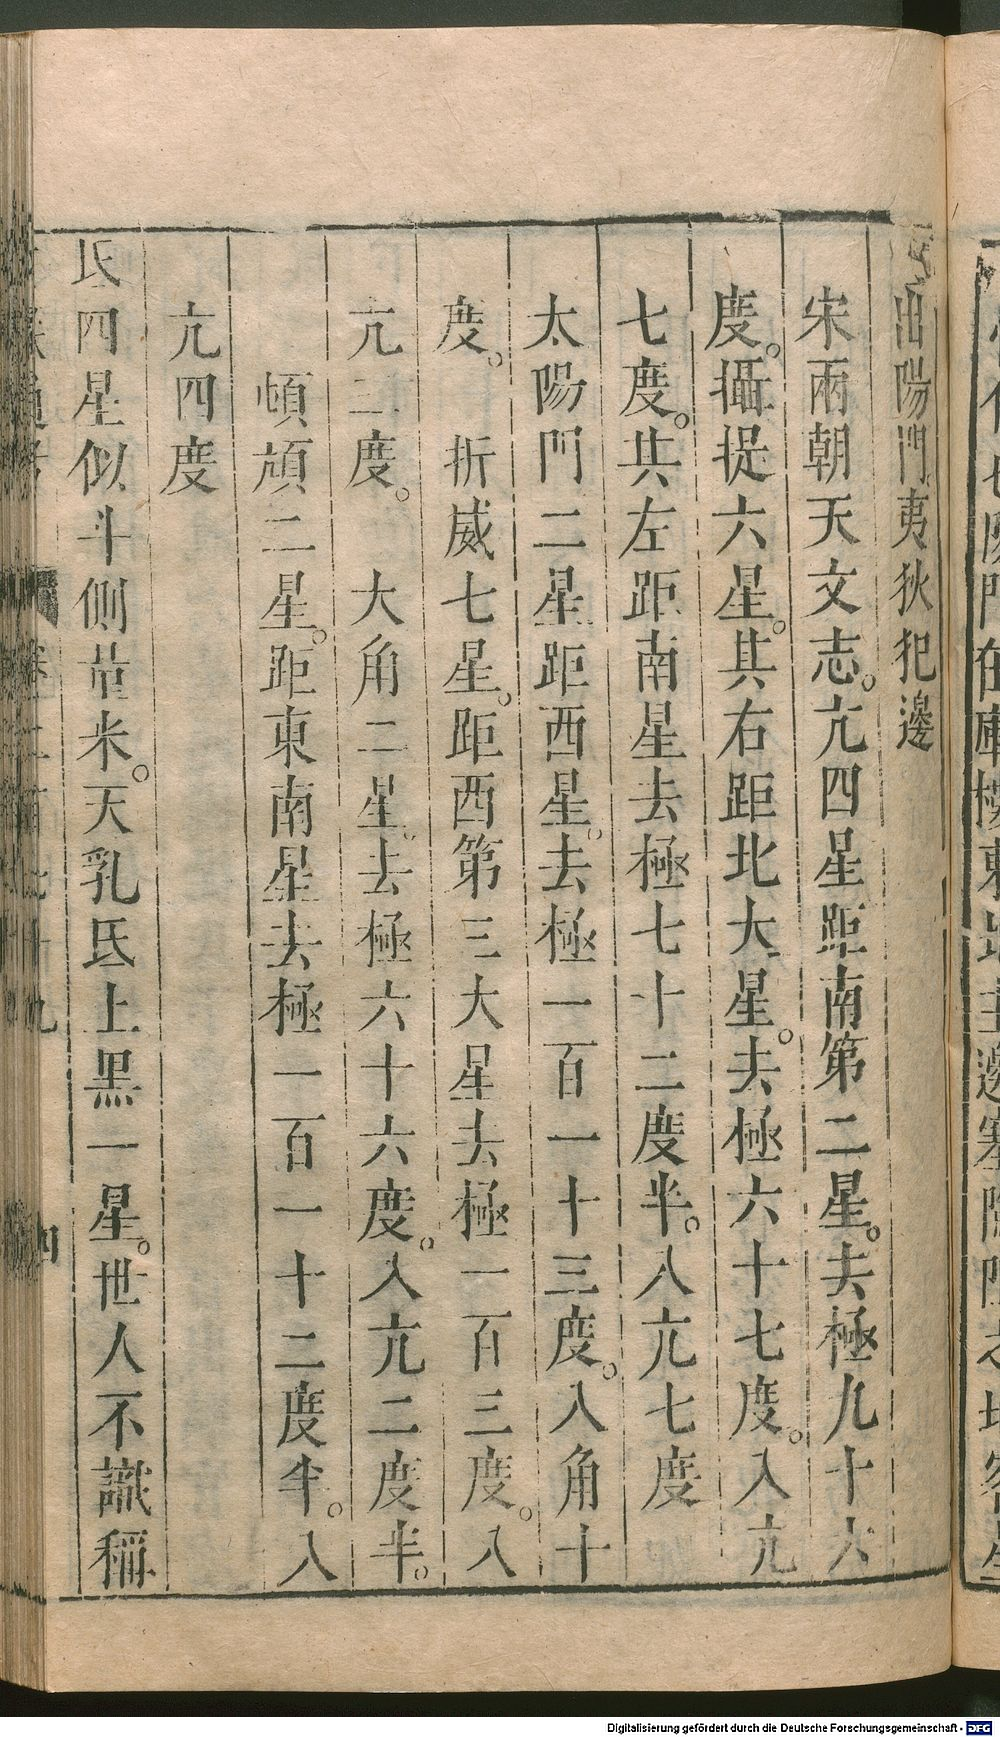 出陽門夷狄犯邊
宋兩朝天文志。亢四星距南第二星。去極九十六
度。攝提六星。其右距北大星。去極六十七度。入亢
七度。其左距南星去極七十二度半。入亢七度
太陽門二星距西星。去極一百一十三度。入角十
度。　折威七星。距西第三大星去極一百三度。入
亢二度。　大角二星。去極六十六度。入亢二度半。
頓頑二星。距東南星去極一百一十二度半。入
亢四度
氐四星似斗側量米。天乳氐上黑一星。世人不識稱
Digitalisierung gefördert durch die Deutsche Forschungsgemeinschaft - DFG